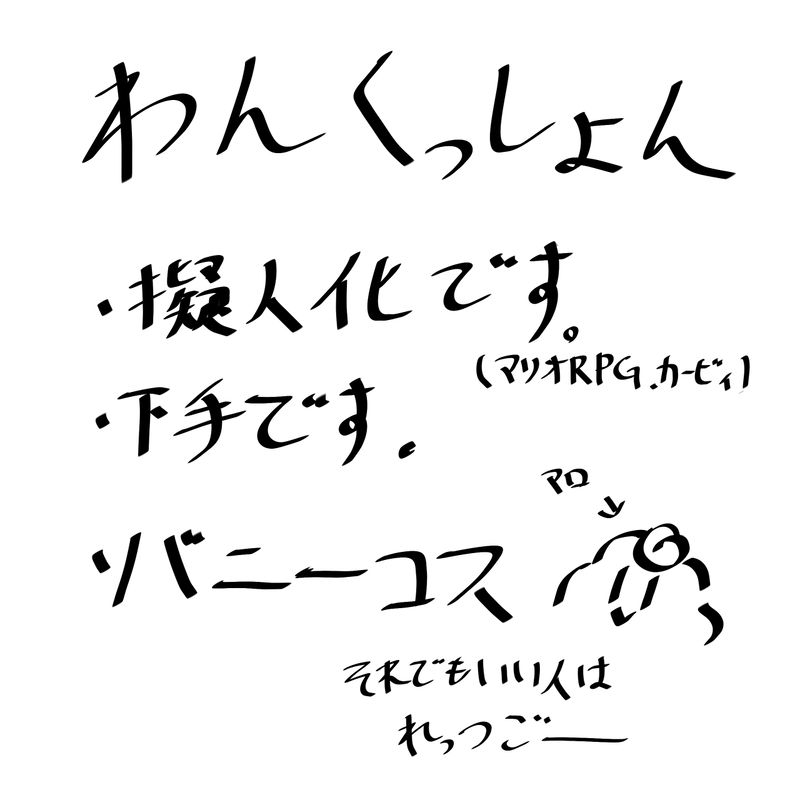 わんくっしょん
・擬人化です。
(マリオRPG、カービィ)
・下手です。
アロ
ソバニーコス
それでもいい人は
れっつごー